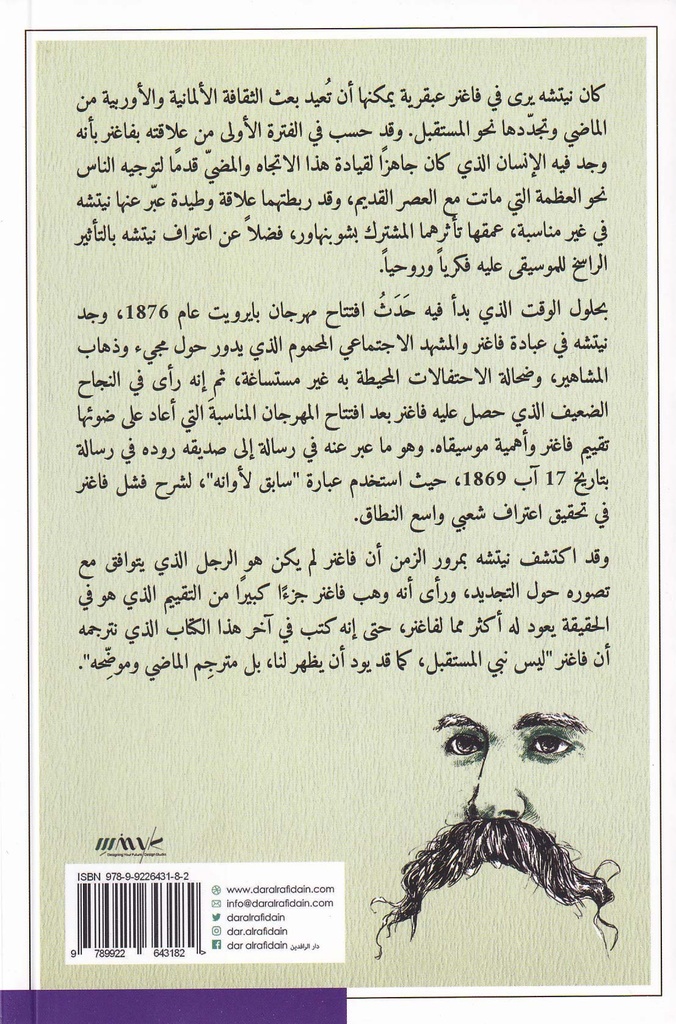 كان نيتشه يرى في فاغنر عبقرية يمكنها أن تُعيد بعث الثقافة الألمانية والأوربية من
الماضي وتجدّدها نحو المستقبل. وقد حسب في الفترة الأولى من علاقته بفاغنر بأنه
وجد فيه الإنسان الذي كان جاهزًا لقيادة هذا الاتجاه والمضيّ قدمًا لتوجيه الناس
نحو العظمة التي ماتت مع العصر القديم، وقد ربطتهما علاقة وطيدة عبّر عنها نيتشه
في غير مناسبة، عمقها تأثرهما المشترك بشوبنهاور، فضلاً عن اعتراف نيتشه بالتأثير
الراسخ للموسيقى عليه فكرياً وروحياً.
بحلول الوقت الذي بدأ فيه حَدَثُ افتتاح مهرجان بايرويت عام 1876، وجد
نيتشه في عبادة فاغنر والمشهد الاجتماعي المحموم الذي يدور حول مجيء وذهاب
المشاهير، وضحالة الاحتفالات المحيطة به غير مستساغة، ثم إنه رأى في النجاح
الضعيف الذي حصل عليه فاغنر بعد افتتاح المهرجان المناسبة التي أعاد على ضوئها
تقييم فاغنر وأهمية موسيقاه. وهو ما عبر عنه في رسالة إلى صديقه روده في رسالة
بتاريخ 17 آب 1869، حيث استخدم عبارة "سابق لأوانه"، لشرح فشل فاغنر
في تحقيق اعتراف شعبي واسع النطاق.
وقد اكتشف نيتشه بمرور الزمن أن فاغنر لم يكن هو الرجل الذي يتوافق مع
تصوره حول التجديد، ورأى أنه وهب فاغنر جزءًا كبيرًا من التقييم الذي هو في
الحقيقة يعود له أكثر مما لفاغنر، حتى إنه كتب في آخر هذا الكتاب الذي نترجمه
أن فاغنر "ليس نبي المستقبل، كما قد يود أن يظهر لنا، بل مترجِم الماضي وموضِّحه".
Designing Your Future Design Studio
ISBN 978-9-9226431-8-2
9 789922 643182 >
www.daralrafidain.com
info@daralrafidain.com
daralrafidain
dar.alrafidain
dar alrafidain دار الرافدين